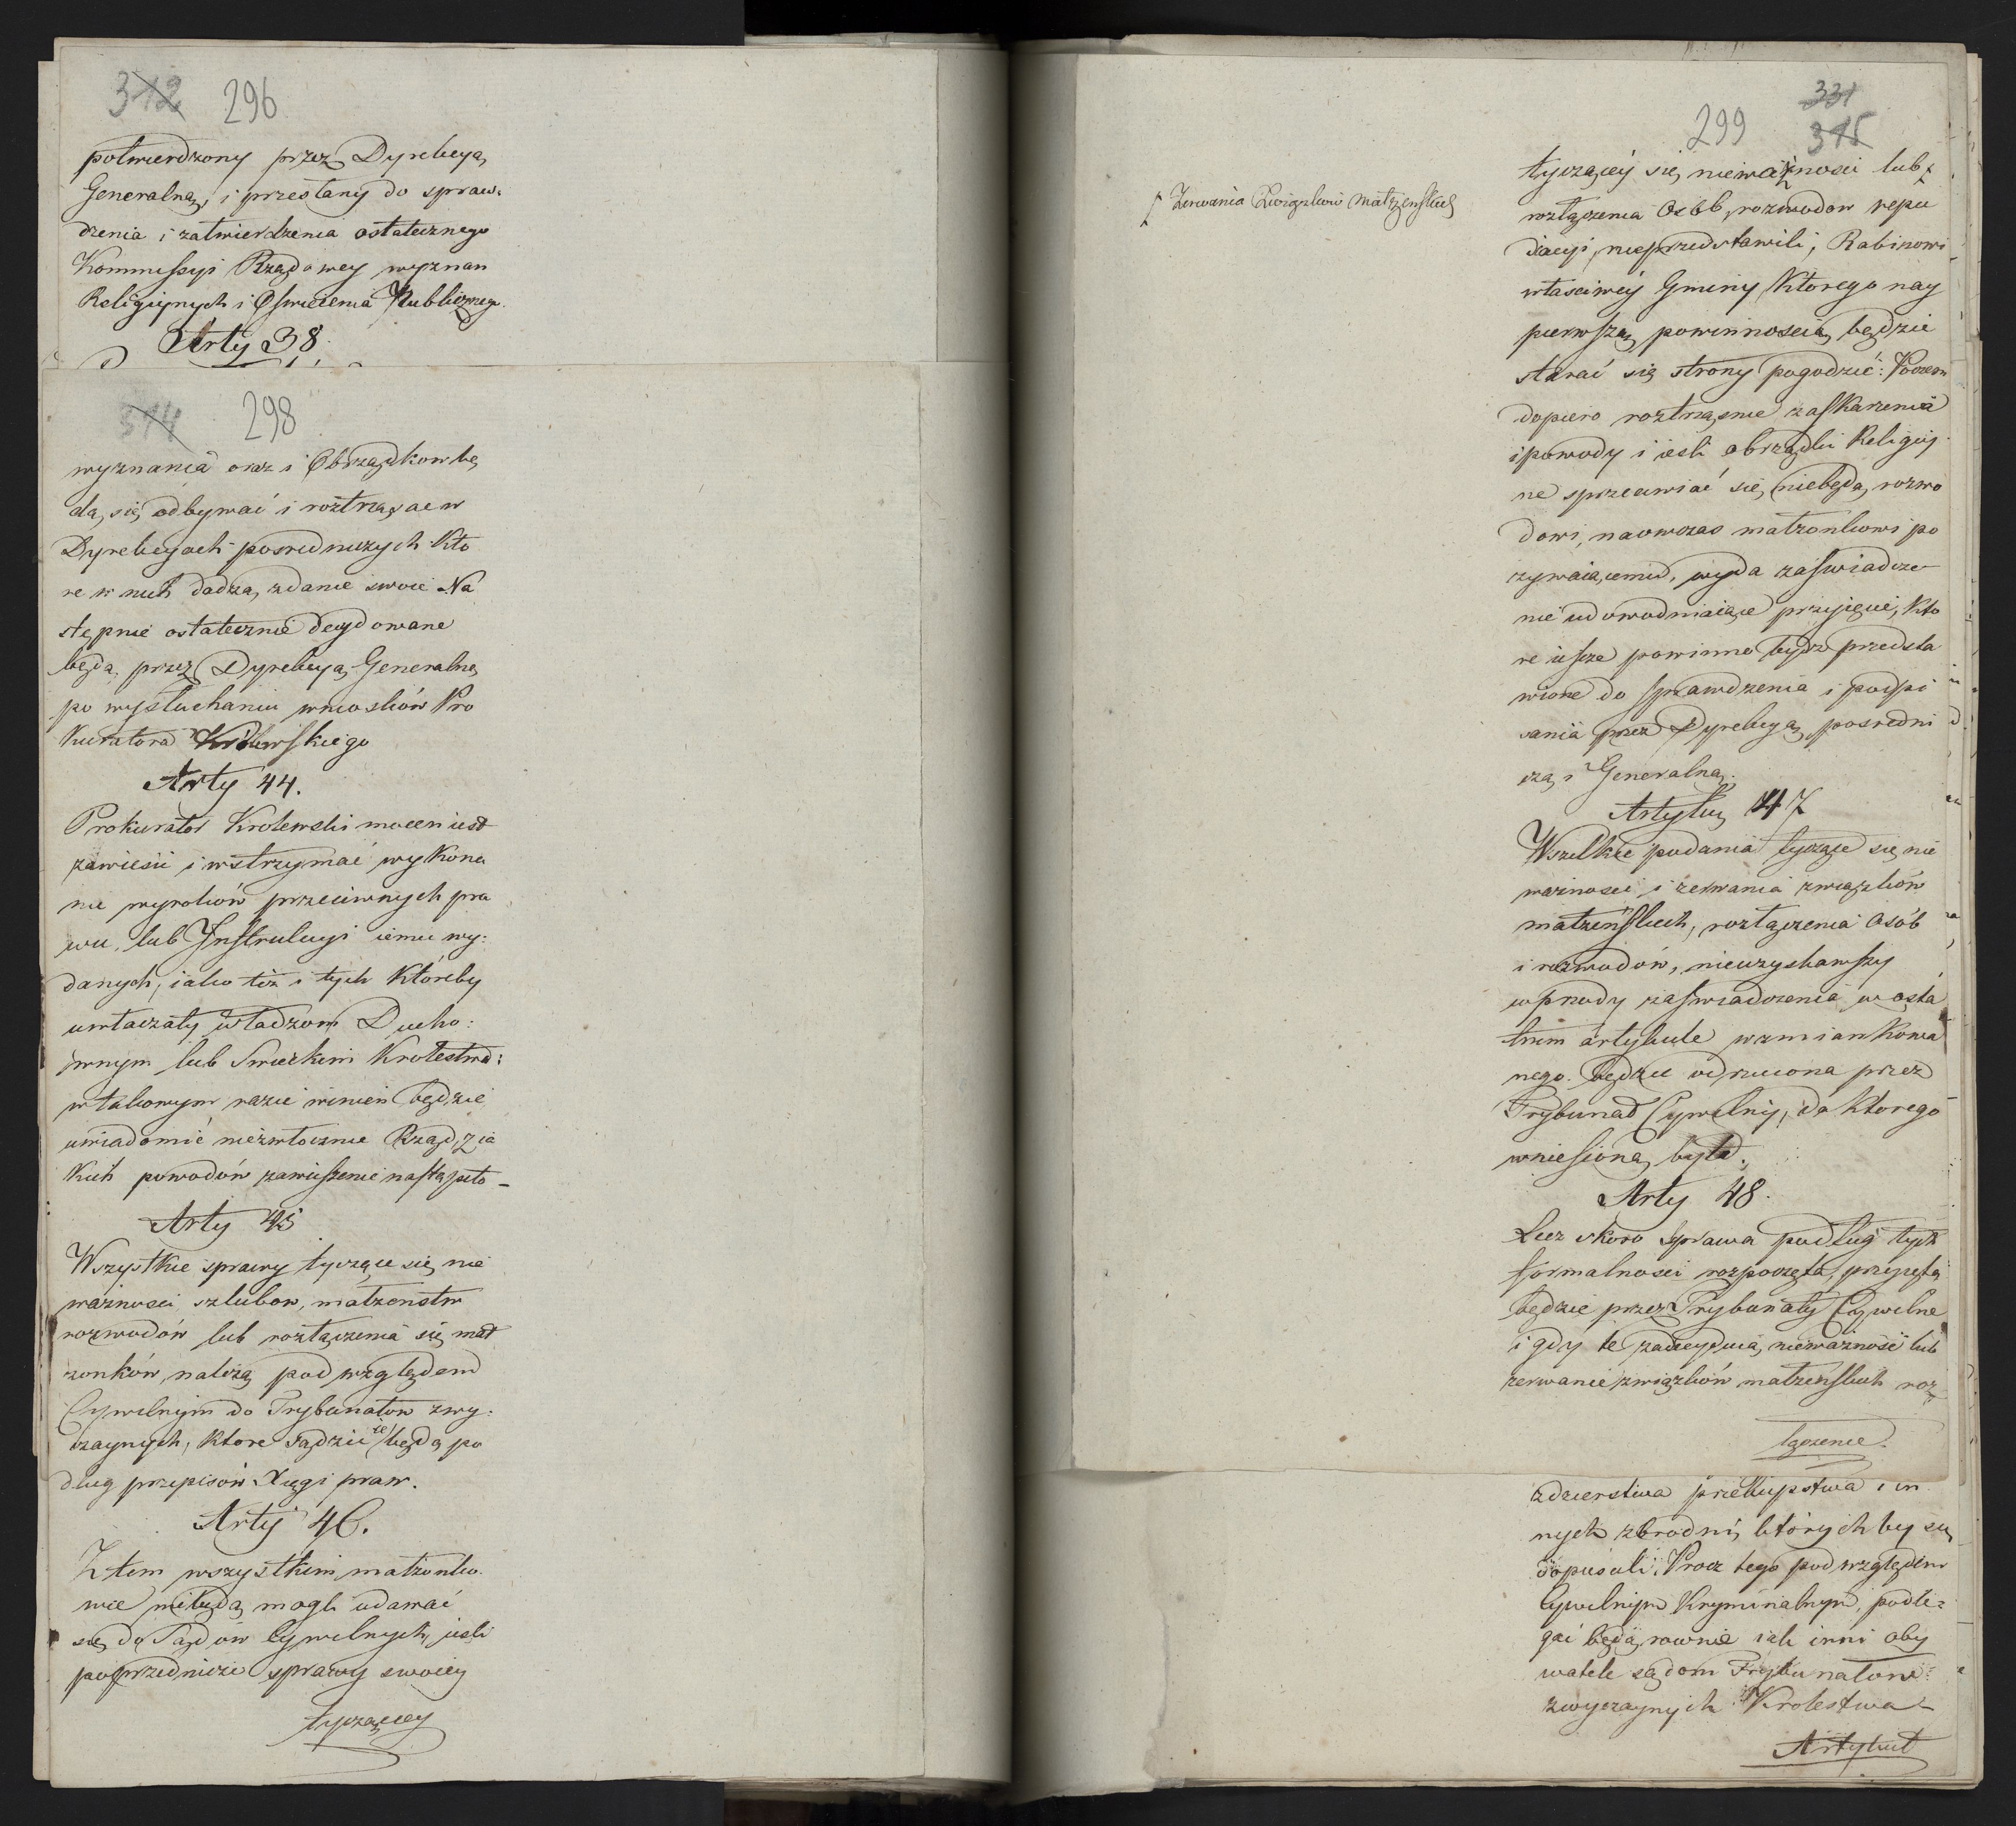 312 296
potwierdzony przez Dyrekcyą
Generalną, i przesłany do spraw:
dzenia i zatwierdzenia ostatecznego
Kommissyi Rządowey wyznan
Religiynych i Oswiecenia Publicznego.
Arty 38.
314 298
wyznania oraz i Obrządkow bę
dą się odbywać i roztrząsae w
Dyrekcyach posredniczych Kto
re w nich dadzą zdanie swoie Na
stępnie ostatecznie decydowane
będą, przez Dyrekcyą Generalną
po wysłuchaniu wniosków Pro
Kuratora Królewskiego
Arty 44.
Prokurator Krolewski mocen iest
zawiesić i wstrzymać wykona
nie wyroków przeciwnych pra
wu, lub Instrukcyi iemu wy:
danych, iako też i tych któreby
uwłaczały władzom Ducho:
wnym lub Swieckim Krolestwa:
w takowym razie winien będzie
uwiadomić niezwłocznie Rząd, z ia
kich powodów zawieszenie nastąpiło –
Arty 45
Wszystkie sprawy tyczące się nie
ważnosci szlubow, małzenstw
rozwodów lub rozłączenia się mał
zonków, należą pod względem
Cywilnym do Trybunałow zwy:
czaynych, ktore sądzić te będą po
dług przepisów Xięgi praw.
Arty 46.
Z tem wszystkim małzonko
wie niebędą mogli udawać
się do Sądów Cywilnych, iesli
poprzedniczo sprawy swoiey
tyczącey
331
299 315
tyczącéy się nieważnosci lub
Zerwania Związkow Małżenskich
rozłączenia Osób, rozwodow repu
diacyi, nieprzedstawili, Rabinowi
własciwéy Gminy Ktorego nay
pierwszą powinnoscią będzie
starać się strony pogodzić: Poczem
dopiero roztrząsnie zaskarzenia
i powody i iesli obrządki Religiy
ne sprzeciwiać się niebędą rozwo
dowi, naowczas małzonkowi po
zywaiącemu, wyda zaswiadcze
nie udowodniaiące przyięcie, kto
re iescze powinno bydz przedsta
wione do sprawdzenia i podpi
sania przez Dyrekcyą posredni
czą i Generalną.
Artykuł 47
Wszelkie podania tyczące się nie
wazności i zerwania związków
małzenskich, rozłączenia Osób
i rozwodów, nieuzyskawszy
wprzody zaswiadczenia w osta
tnim artykule wzmiankowa
nego. będzie odrzucona przez
Trybunał Cywilny, do ktorego
wniesioną była.
Arty 48.
Lecz skoro sprawa podług tych
formalnosci rozpoczęta, przyięta
będzie przez Trybunały Cywilne
i gdy te zadecydują nieważność lub
zerwanie związków małzenskich roz
łączenie.
zdzierstwa przekupstwa i in
nych zbrodni, których by się
dopuścili. Procz tego pod względem
Cywilnym Kryminalnym, podle=
gać będą rownie iak inni oby
watele sądom Trybunałow
zwyczaynych Krolestwa –
Artykuł